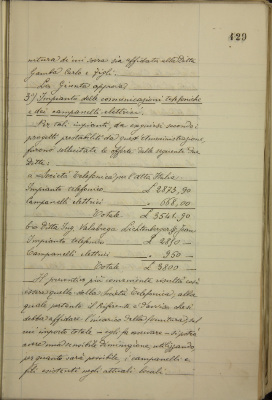 129
ratura di mi sura sia affidata alla Ditta
Gamba Carlo e figli.
La Giunta approva
3º) Impianto delle comunicazioni telefoniche
e dei campanelli elettrici.
Per tali impianti, da eseguirsi secondo i
progetti prestabiliti da quest'Amministrazione,
furono sollecitate le offerte delle seguenti due
Ditte:
a) Società Telefonica per l'alta Italia
Impianto telefonico £ 2873,90
Campanelli elettrici " 668,00
Totale £ 3541,90
b) Ditta Ing.
Impianto telefonico £ 2850 —
Campanelli elettrici " 950 —
Totale £ 3800 —
Il preventivo più conveniente risulta così
essere quello della Società Telefonica, alla
quale pertanto il Referente è d'avviso che si
debba affidare l'incarico della fornitura, il
cui importo totale — egli fa osservare — si potrà
avere una sensibile diminuzione, utilizzando
per quanto sarà possibile, i campanelli e
fili esistenti negli attuali locali.